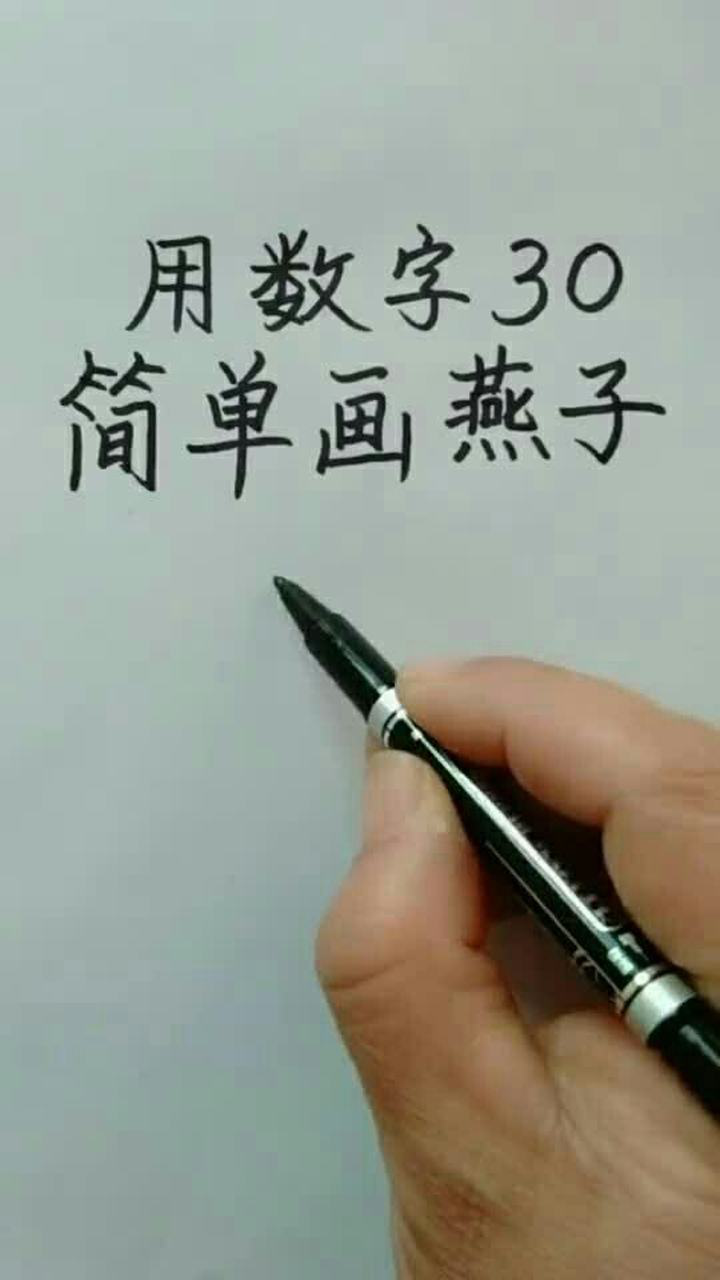 用数字30
简单画燕子